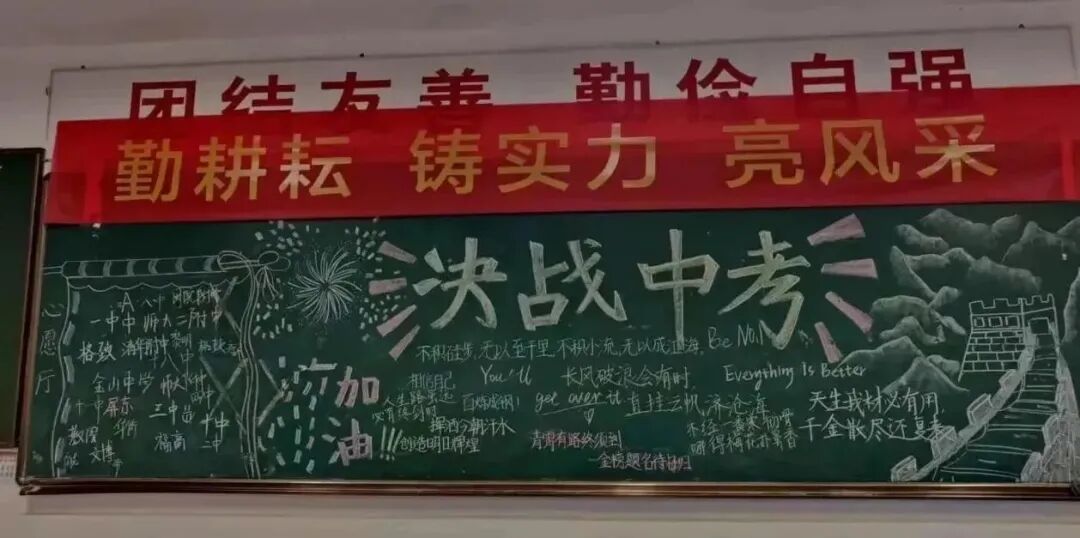 团结友善 勤俭自强
勤耕耘 铸实力 亮风采
决战中考
心愿厅
A 八中
一中 中 师大二附中
格致
八中
金山中学
十中 屏东
三中
十中
福高
二中
文博
加油
加油!!
不积跬步,无以至千里 不积小流,无以成江海,
Be No.1
相信自己
You'll
get over it
长风破浪会有时,
直挂云帆济沧海
Everything Is Better
人生路虽远
百炼成钢!
挥洒今朝汗水
创造明日辉煌
青霄有路终须到
金榜题名待何日
不经一番寒彻骨
哪得梅花扑鼻香
天生我材必有用,
千金散尽还复来